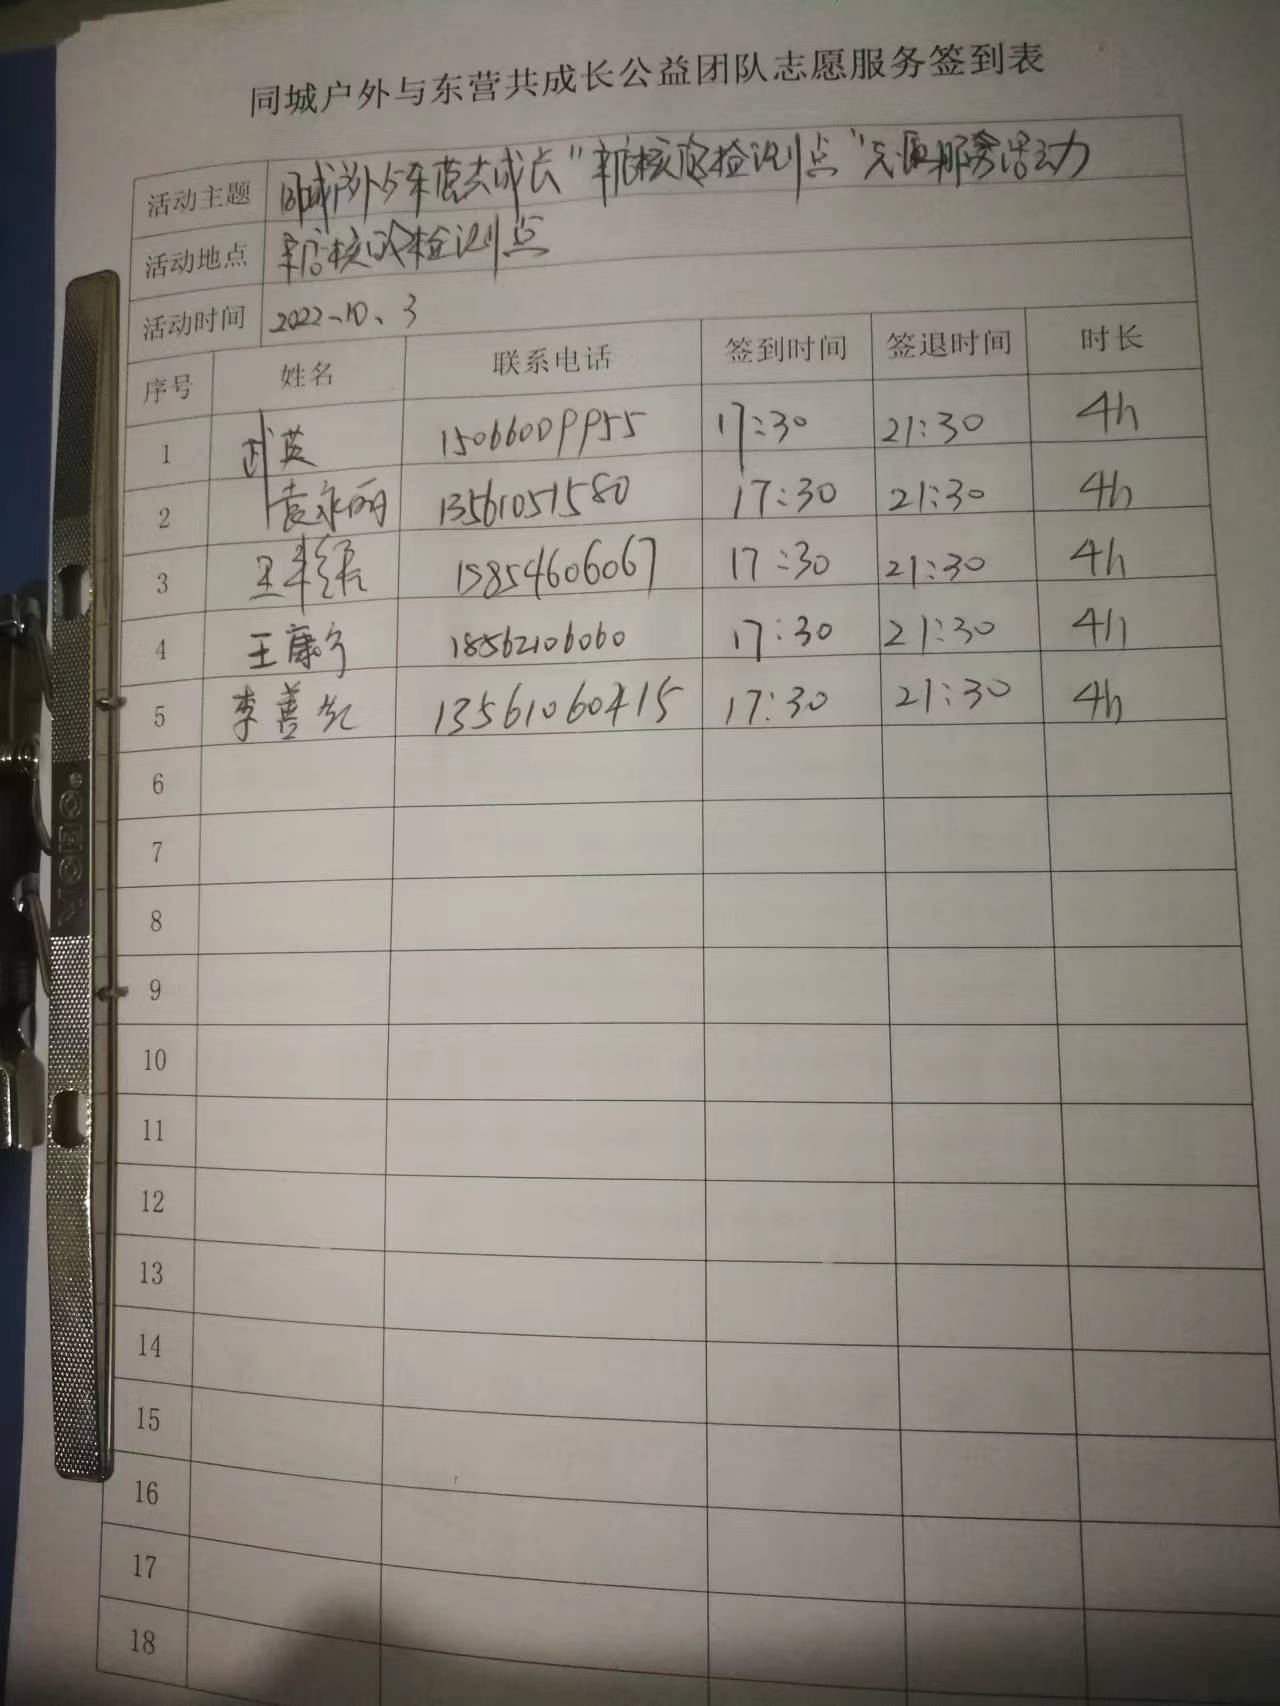 同城户外与东营共成长公益团队志愿服务签到表
活动主题 同城户外与东营共成长“辛店核酸检测点”志愿服务活动
活动地点 辛店核酸检测点
活动时间 2022、10、3
序号 姓名 联系电话 签到时间 签退时间 时长
1 武英 15066009955 17:30 21:30 4h
2 袁永丽 13561051580 17:30 21:30 4h
3 15854606067 17:30 21:30 4h
4 王康宁 18562106060 17:30 21:30 4h
5 李善 13561060415 17:30 21:30 4h
6
7
8
9
10
11
12
13
14
15
16
17
18